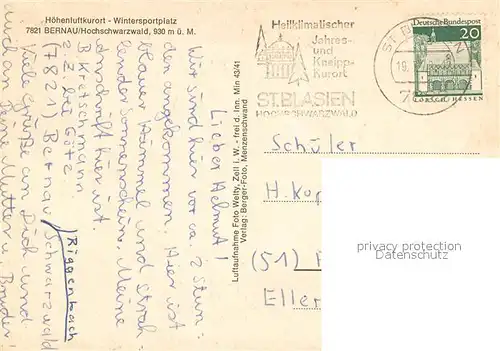 Höhenluftkurort - Wintersportplatz
7821 BERNAU/Hochschwarzwald, 930 m ü. M.
Lieber Helmut!
Wir sind hier vor ca. 2 Stun-
den angekommen. Hier ist
blauer Himmel und strah-
lender Sonnenschein. Meine
Anschrift hier ist:
B. Kretschmann
z. Z. bei Götz
(7821) Bernau/Schwarzwald
Riggenbach
Viele Grüße an Dich und
auch an Deine Mutter u. Bruder!
Luftaufnahme Foto Welty, Zell i. W. - frei d. Inn. Min 43/41
Verlag: Berger-Foto, Menzenschwand
Heilklimatischer
Jahres-
und
Kneipp-
Kurort
ST.BLASIEN
HOCHSCHWARZWALD
ST. B
19.
7
Deutsche Bundespost
20
LORSCH/HESSEN
Schüler
H.
(51)
Eller
privacy protection
Datenschutz